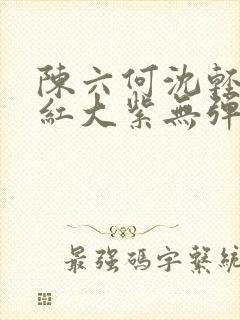 陳六何沈輕
紅大紫無彈
最強碼字繫統